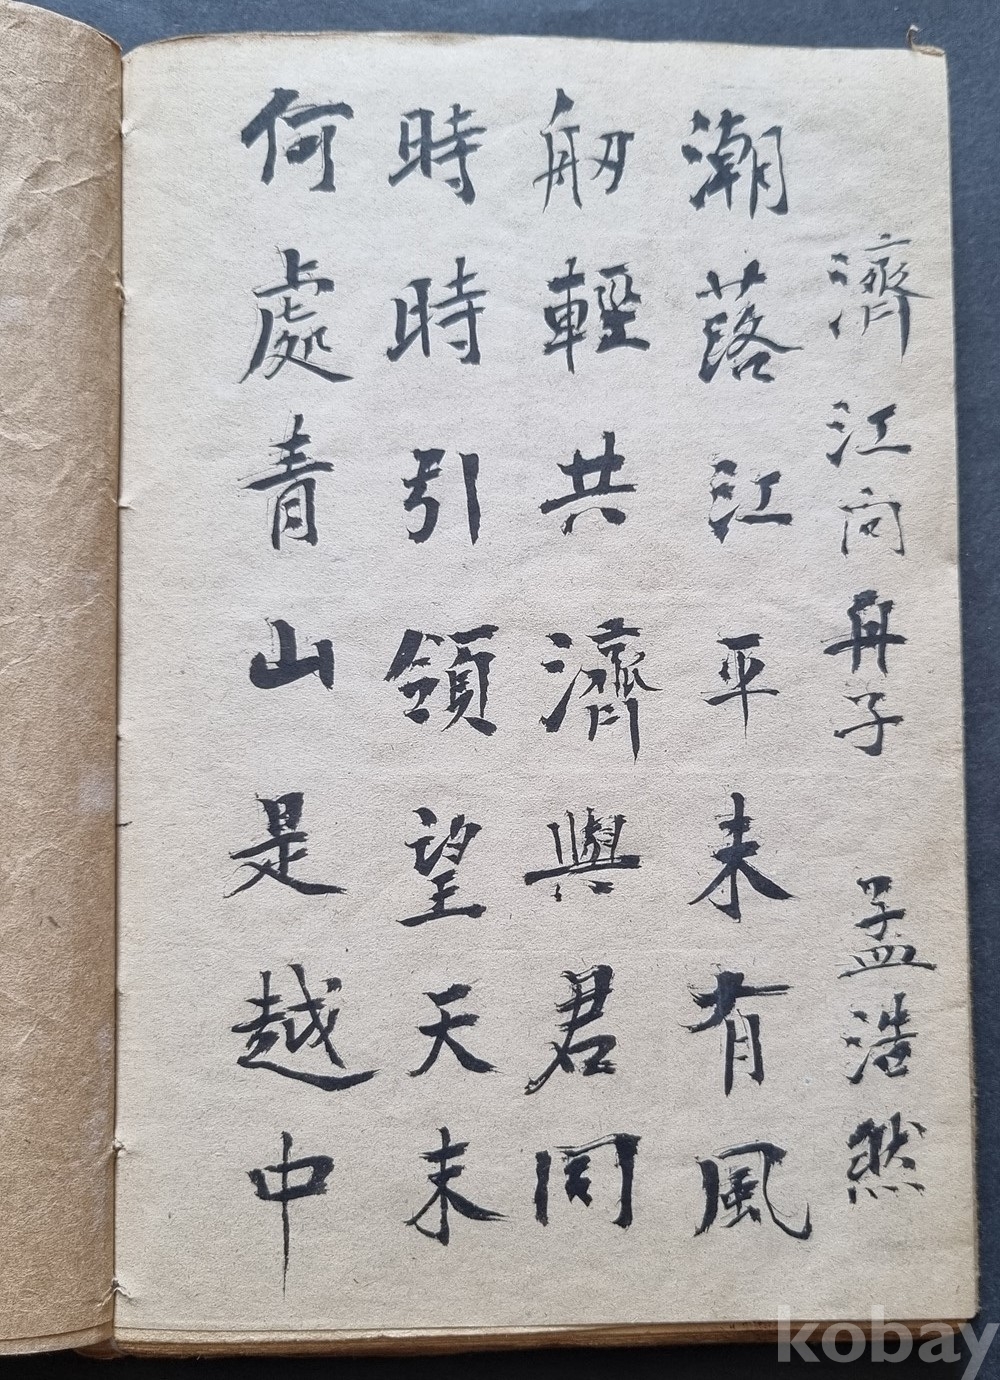 濟江向舟子 孟浩然
潮落江平未有風
舠輕共濟與君同
時時引領望天末
何處青山是越中
kobay